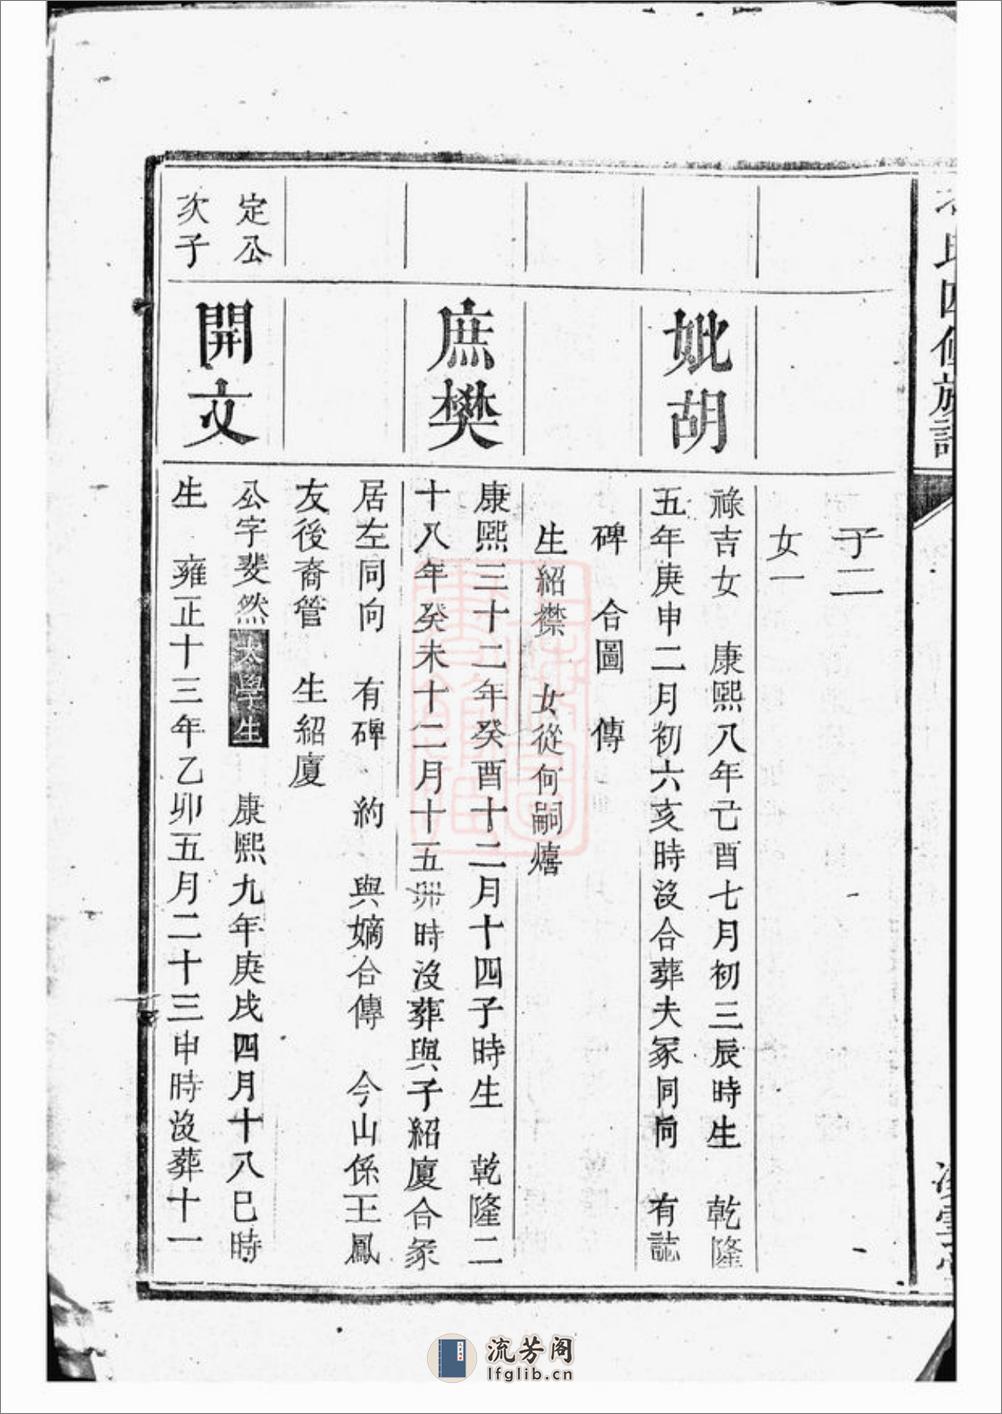 氏四修族譜
子二
女一
妣胡
祿吉女 康熙八年己酉七月初三辰時生 乾隆
五年庚申二月初六亥時沒合葬夫冢同向 有誌
碑 合圖 傳
生紹襟 女從何嗣熺
庶樊
康熙三十二年癸酉十二月十四子時生 乾隆二
十八年癸未十二月十五丱時沒葬與子紹廈合冢
居左同向 有碑 約 與嫡合傳 今山係王鳳
友後裔管 生紹廈
定公
次子
開文
公字斐然太學生 康熙九年庚戌四月十八巳時
生 雍正十三年乙卯五月二十三申時沒葬十一
流芳阁
lfglib.cn